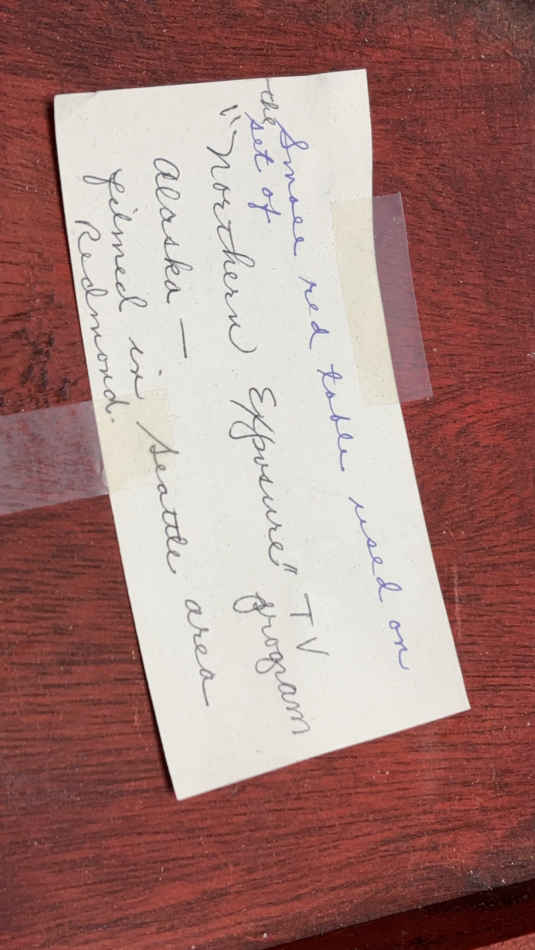 Small red table used on
the set of
"Northern Exposure" TV program
Alaska —
filmed in Seattle area
Redmond.